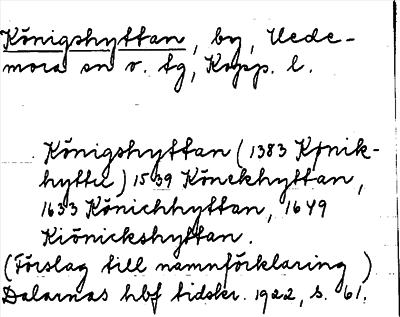 Königshyttan, by, Hede-
mora sn o. tg, Kopp. l.
Königshyttan (1383 Kønik-
hytte) 1539 Könckhyttan,
1633 Könichhyttan, 1649
Kiönickshyttan.
(Förslag till namnförklaring)
Dalarnas hbf tidskr. 1922, s. 61.